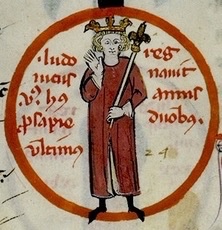 ludo
uicus
vꝰ hꝰ
ꝓsapie
ultimus
reg
nauit
annis
duobꝫ
24